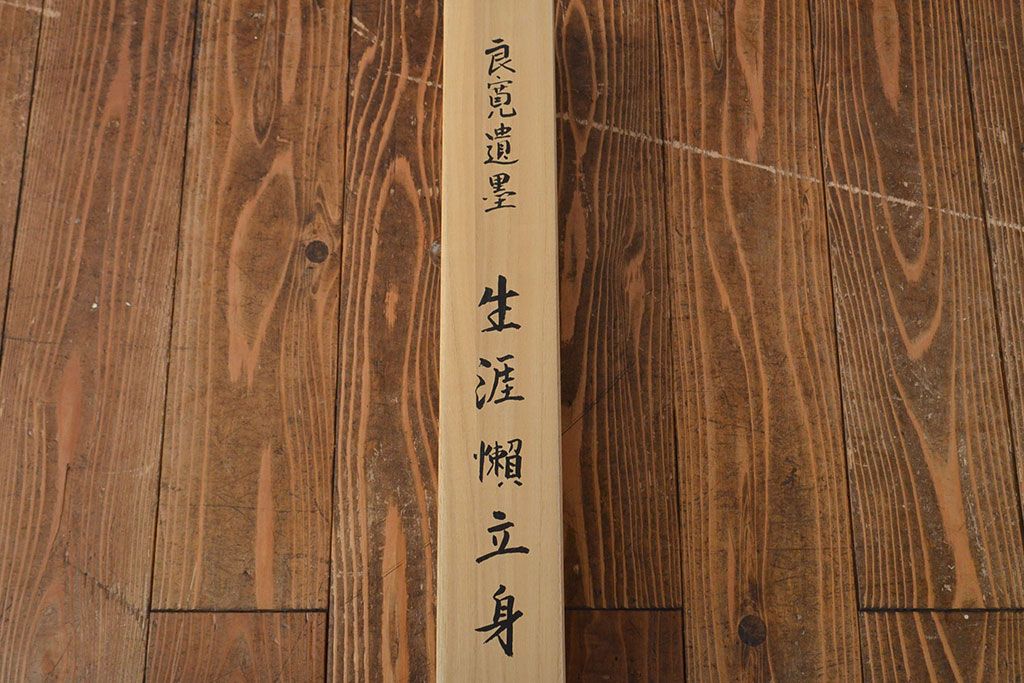 良寛遺墨 生涯懶立身